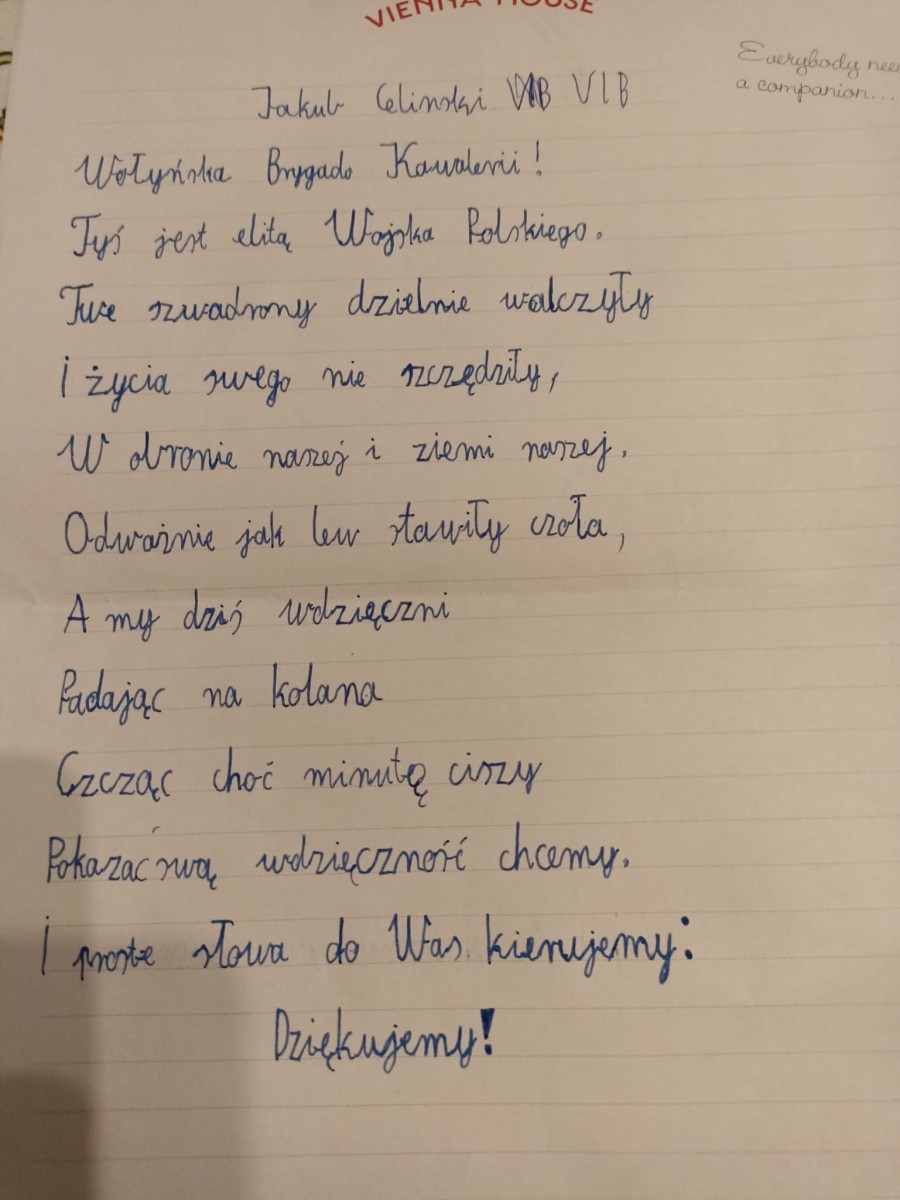 VIENNA HOUSE
Everybody nee
a companion...
Jakub Celinski VIB
Wołyńska Brygado Kawalerii!
Tyś jest elitą Wojska Polskiego.
Twe szwadrony dzielnie walczyły
I życia swego nie szczędziły,
W obronie naszej i ziemi naszej.
Odważnie jak lew stawiły czoła,
A my dziś wdzięczni
Padając na kolana
Czcząc choć minutę ciszy
Pokazać swą wdzięczność chcemy.
I proste słowa do Was kierujemy:
Dziękujemy!